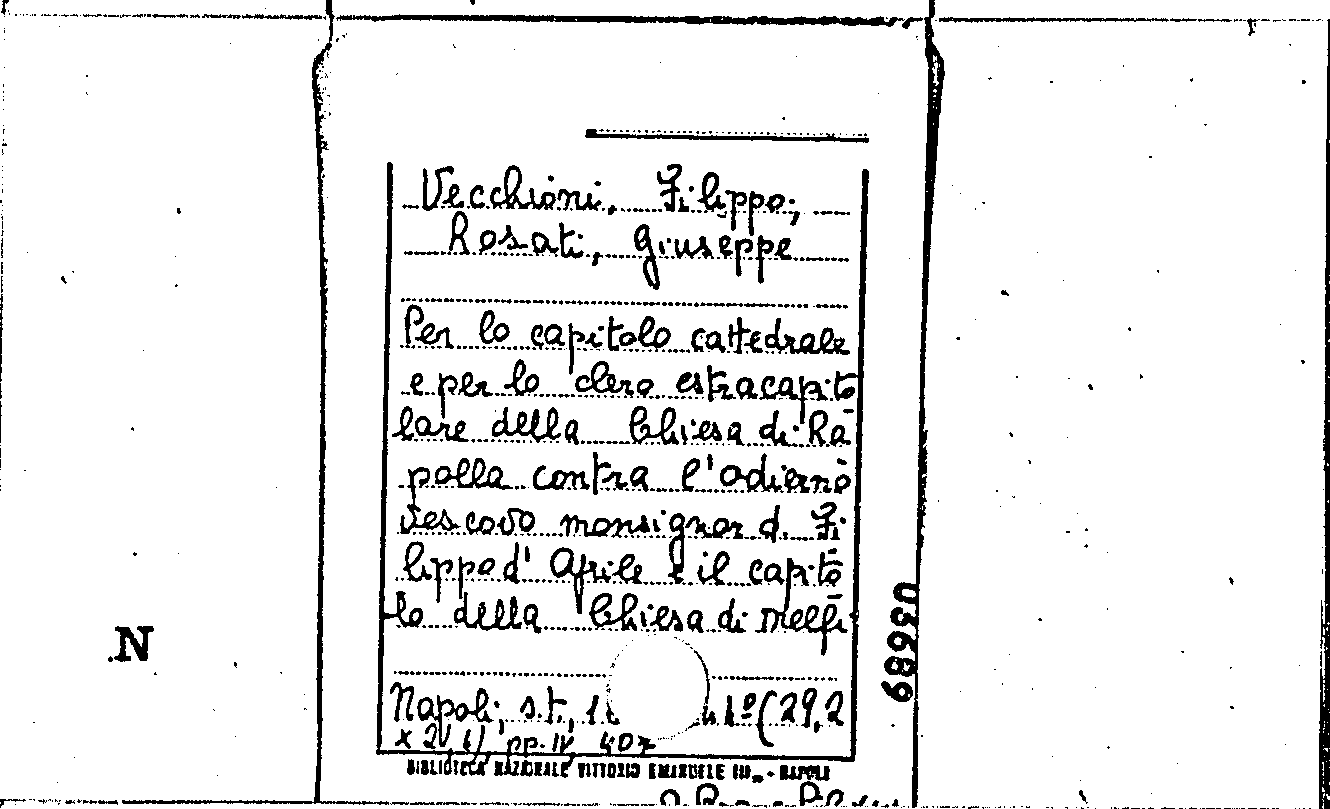 Vecchioni, Filippo;
Rosati, Giuseppe
Per lo capitolo cattedrale
e per lo clero estracapito
lare della Chiesa di Ra
polla contra l'odierno
vescovo monsignor d. Fi
lippo d'Aprile e il capito
lo della Chiesa di Melfi
Napoli, s.t., 1º (29,2
pp. IV, 407
BIBLIOTECA NAZIONALE VITTORIO EMANUELE III - NAPOLI
03689
N